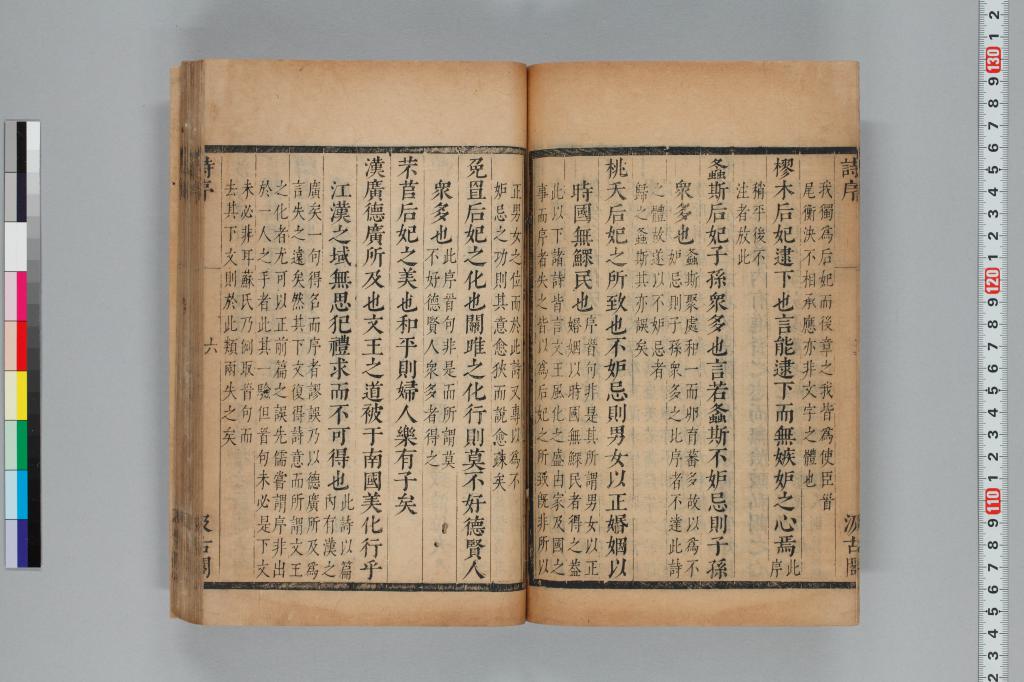 詩序
汲古閣
我獨爲后妃而後章之我皆爲使臣首
尾衡決不相承應亦非文字之體也
樛木后妃逮下也言能逮下而無嫉妒之心焉此序
稍平後不
注者放此
螽斯后妃子孫衆多也言若螽斯不妒忌則子孫
衆多也螽斯聚處和一而卵育蕃多故以爲不
妒忌則子孫衆多之比序者不達此詩
之體故遂以不妒忌者
歸之螽斯其亦誤矣
桃夭后妃之所致也不妒忌則男女以正婚姻以
時國無鰥民也序首句非是其所謂男女以正
婚姻以時國無鰥民者得之蓋
此以下諸詩皆言文王風化之盛由家及國之
事而序者失之皆以爲后妃之所致旣非所以
正男女之位而於此詩又專以爲不
妒忌之功則其意愈狹而說愈疎矣
兔罝后妃之化也關雎之化行則莫不好德賢人
衆多也此序首句非是而所謂莫
不好德賢人衆多者得之
芣苢后妃之美也和平則婦人樂有子矣
漢廣德廣所及也文王之道被于南國美化行乎
江漢之域無思犯禮求而不可得也此詩以篇
內有漢之
廣矣一句得名而序者謬誤乃以德廣所及爲
言失之遠矣然其下文復得詩意而所謂文王
之化者尤可以正前篇之誤先儒嘗謂序非出
於一人之手者此其一驗但首句未必是下文
未必非耳蘇氏乃例取首句而
去其下文則於此類兩失之矣
詩序
六
汲古閣